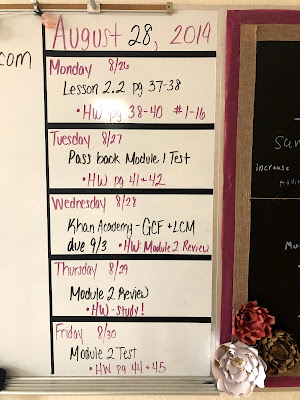 .com
August 28, 2019
Monday 8/26
Lesson 2.2 pg 37-38
• HW pg 38-40 #1-16
Tuesday 8/27
Pass back Module 1 Test
• HW pg 41+42
Wednesday 8/28
Khan Academy - GCF + LCM
due 9/3 • HW: Module 2 Review
Thursday 8/29
Module 2 Review
• HW - study!
Friday 8/30
Module 2 Test
• HW pg 44+45
increase